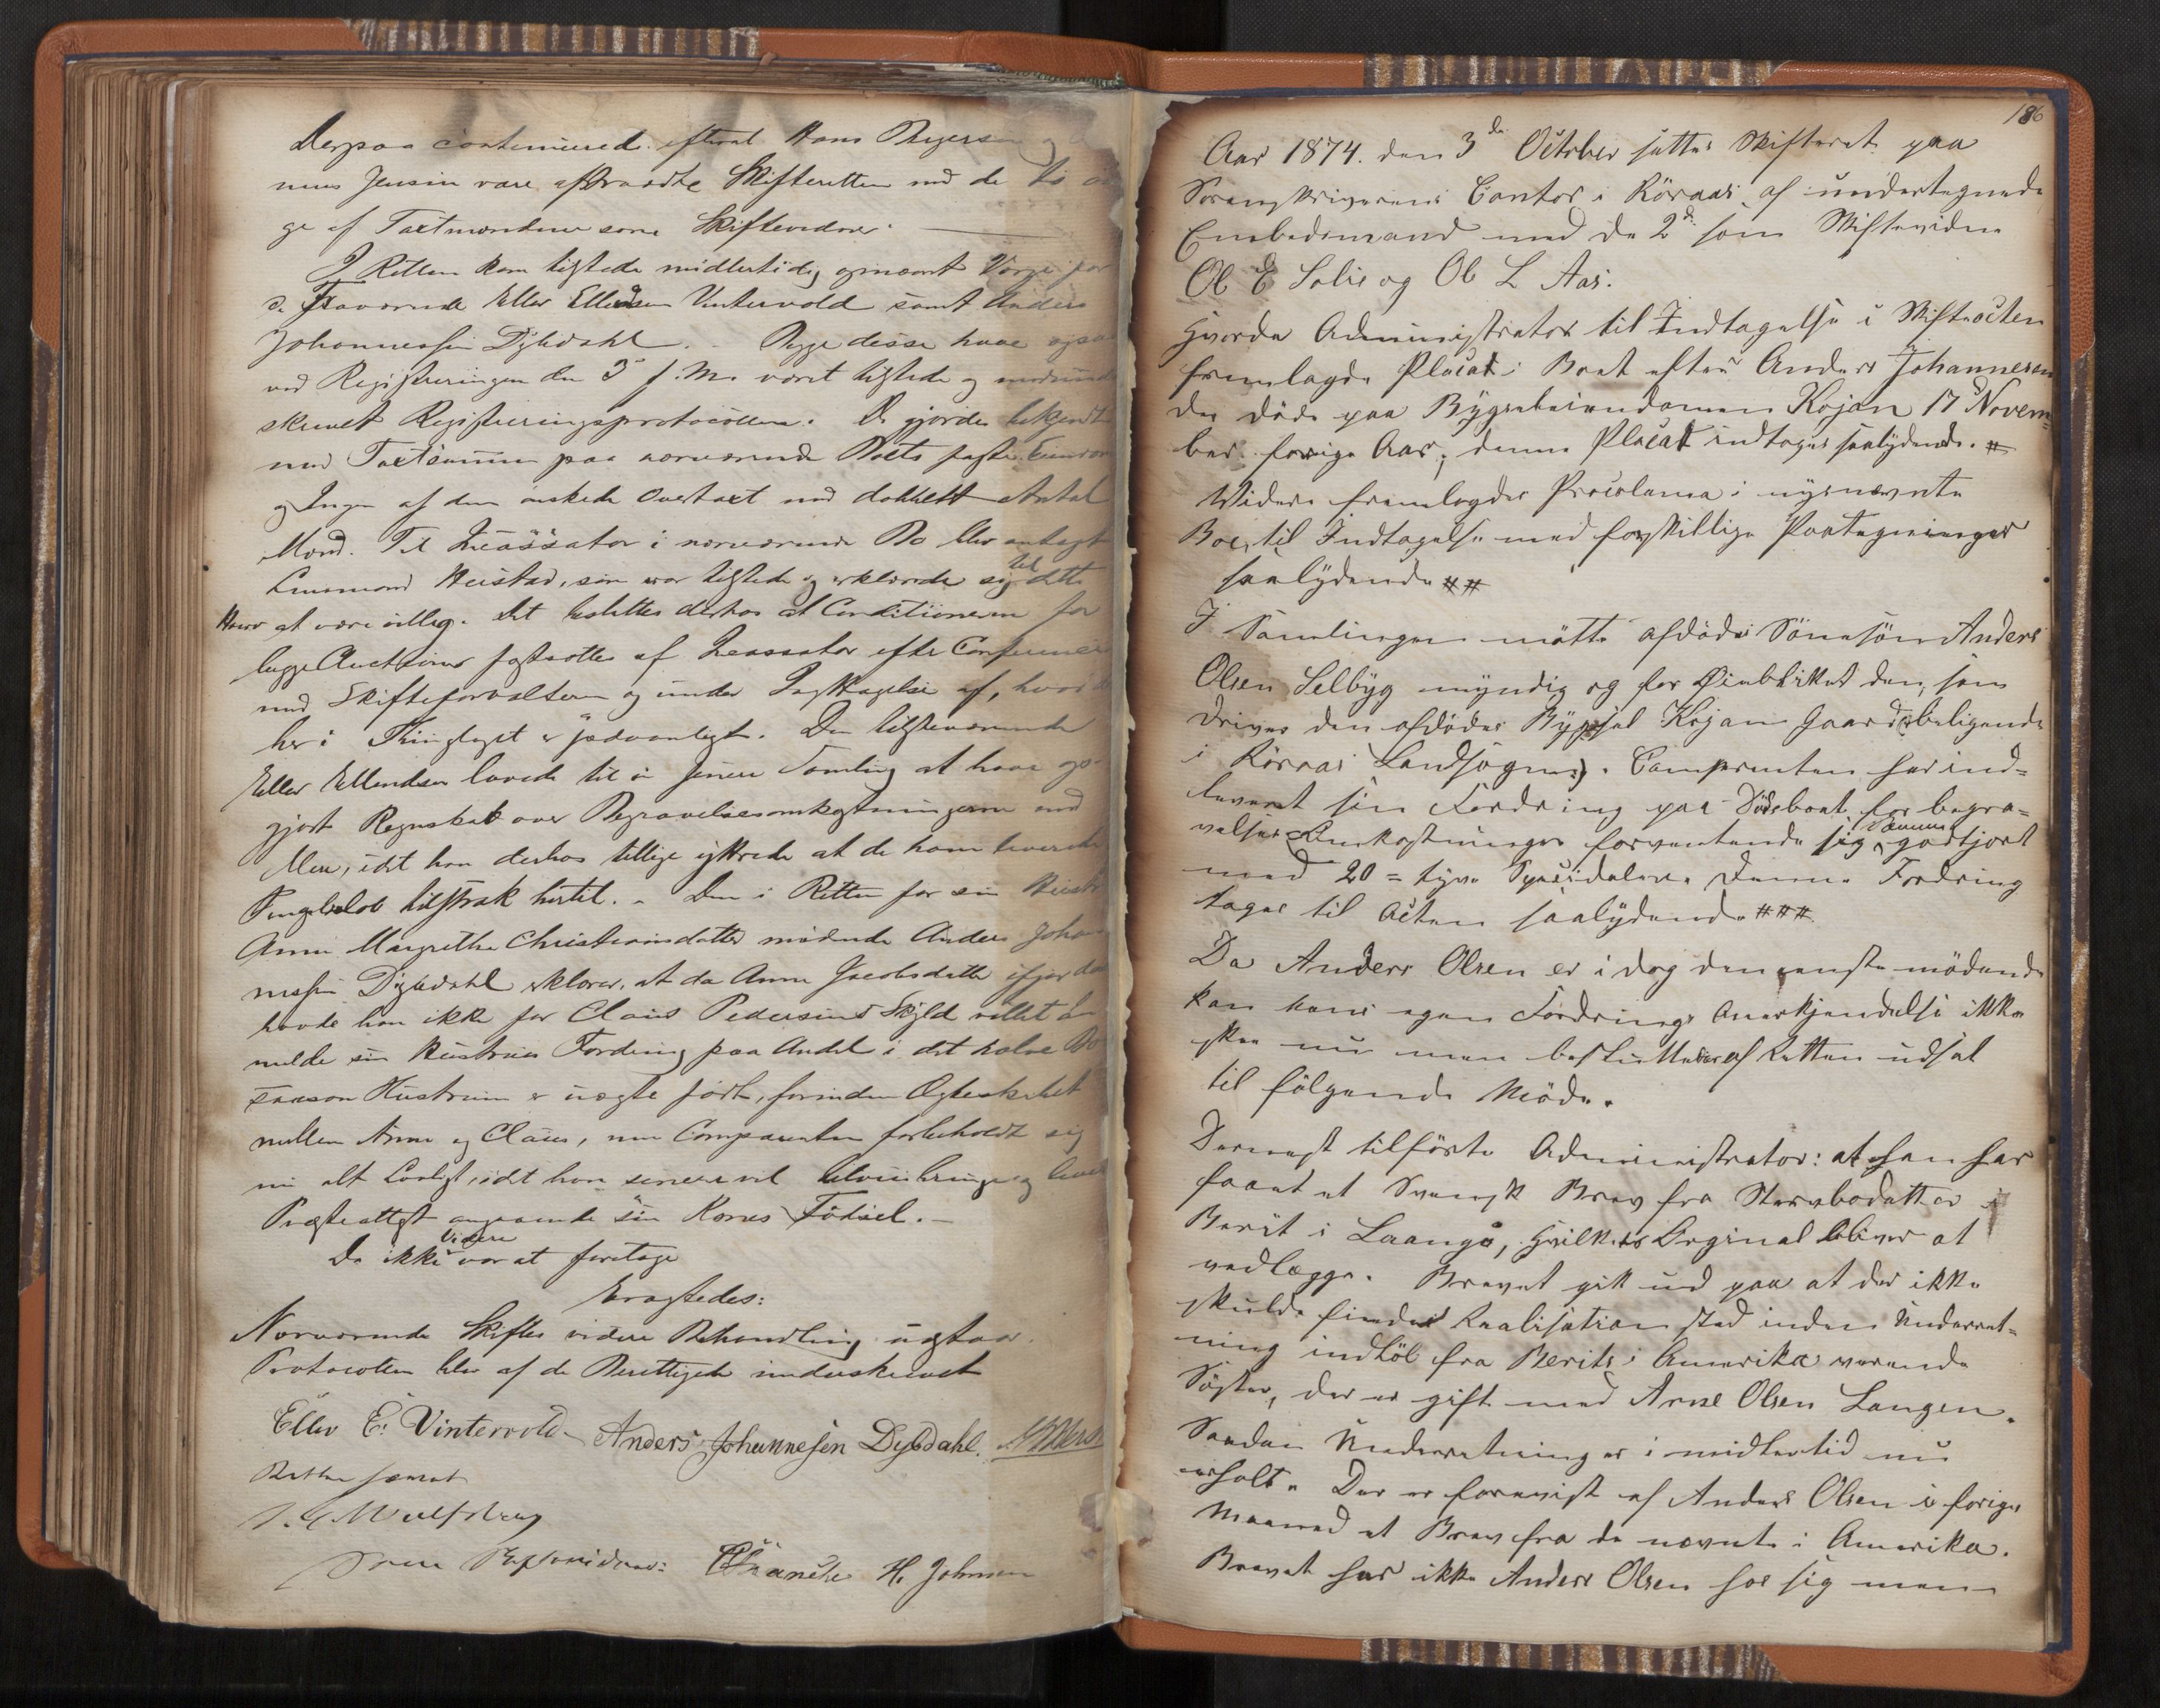 Derpaa continuered. efterat Hans Bryersen og
nus Jensen vare aftraadte Skifteretten med de to
ge af Taxtmændene som Skiftevidner.
I Retten kom tilstede midlertidig opnævnt Værge for
d. Fraværende Eller Ellendsen Vintervold samt Anders
Johannessen Dybdahl. Begge disse have ogsaa
ved Registreringen den 3 f. M. været tilstede og
skrevet Registreringsprotocollen. De gjordes bekjendt
med Taxtsummen paa nærværende Boets faste Eiendom
og Ingen af dem ønskede Overtaxt med dobbelt Antal
Mænd. Til Incassator i nærværende Bo blev antagt
Lensmand Heistad, som var tilstede og erklærede sig til dette
Hverv at være villig. Det besluttes derhos at Conditionerne for
begge Auctioner fastsættes af Incassator efter Conference
med Skifteforvalteren og under Iagttagelse af, hvad der
her i Thinglaget er sædvanligt. Den tilstedeværende
Eller Ellendsen lovede til en senere Samling at have op-
gjort Regnskab over Begravelsesomkostningerne med
Mere, idet han derhos tillige yttrede at de ham leverede
Pengebeløb tilstrak hertil. - Den i Retten for sin Hustru
Anne Margrethe Christiansdatter mødende Anders Johan
nessen Dybdahl erklærer, at da Anne Jacobsdatter ifjor døde
havde han ikke for Claus Pedersens Skyld villet an
melde sin Hustrues Fordring paa Andel i det halve Bo
saason Hustruen er uægte født, forinden Ægteskabet
mellem Anne og Claus, men Comparenten forbeholdt sig
nu alt Lovligt, idet han senere vil tilveiebringe og levere
Præsteattest angaaende sin Kones Fødsel. -
Da ikke videre var at foretage
Eragtedes:
Nærværende Skiftes videre Behandling udstaar.
Protocollen blev af de Berettigede underskrevet
Eller E. Vintervold Anders Johannesen Dybdahl.
Retten hævet
Wulfsberg
Som Skiftevidner: H. Johnsen
186
Aar 1874. den 3de October sattes Skifteret paa
Sorenskriverens Contor i Röraas af undertegnede
Embedsmand med de 2de som Skiftevidne
Ol E Solie og Ol L Aas.
Hvorda Administrator til Indtagelse i Skifteacten
fremlagde Placat i Boet efter Anders Johannesen
der döde paa Bygselseiendommen Kojan 17 Novem=
ber forrige Aar; denne Placat indtages saalydende. #
Widere fremlagdes Proclama i nysnævnte
Boe, til Indtagelse med forskillige Paategninger
saalydende ##
I Samlingen mötte afdödes Sönnesön Anders
Olsen Selbyg myndig og for Øieblikket den, som
driver den afdödes Bygsel Kojan Gaard (beligende
i Röraas Landsogn). Comparenten har ind=
leveret sin Fordring paa Dödsboet for begra=
velses Omkostninger forventende sig samme godtgjort
med 20 = tyve Speciedaler. Denne Fordring
tages til Acten saalydende ###.
Da Anders Olsen er i dag den eneste mödende
kan hans egen Fordrings Anerkjendelse ikke
skee nu men besluttedes af Retten udsat
til fölgende Möde.
Dernæst tilförte Administrator: at han har
faaet et Svensk Brev fra Stervbodatter
Berit i Laangå, hvilkets Orginal bliver at
vedlægge. Brevet gik ud paa at der ikke
skulde finde Realisation sted inden Underret=
ning indlöb fra Berits i Amerika værende
Söster, der er gift med Arne Olsen Langen.
Saadan Underretning er i midlertid nu
erholt. Der er forevist af Anders Olsen i forige
Maaned et Brev fra de nevnte i Amerika.
Brevet har ikke Anders Olsen hos sig men